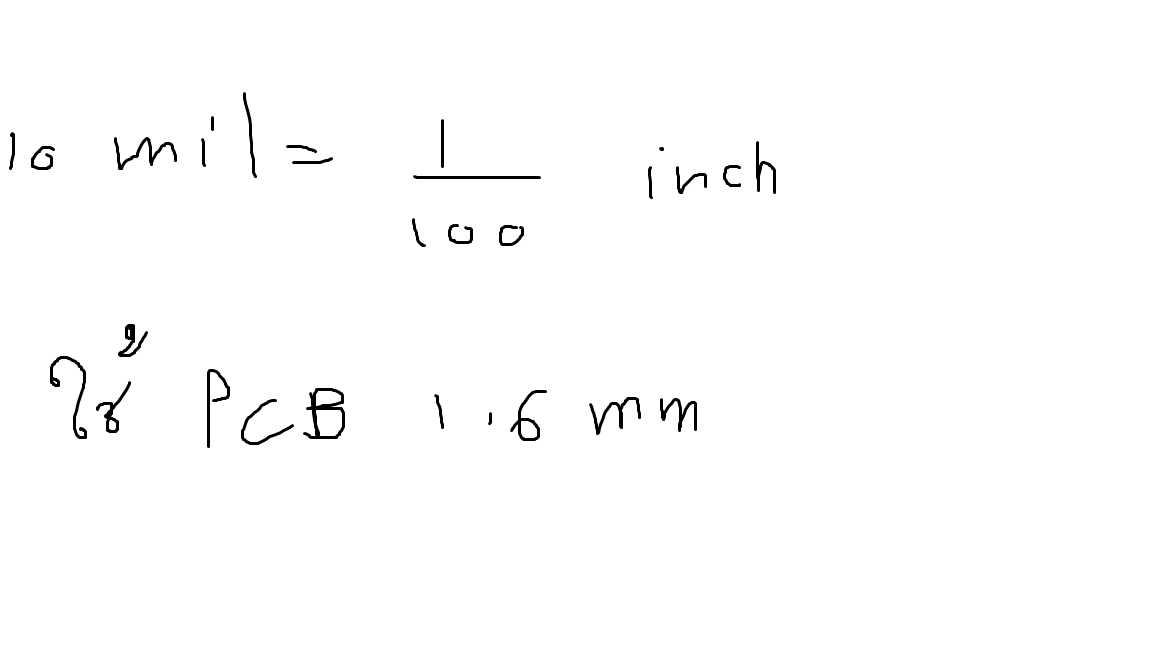 10 mil = 1/100 inch
ใช้ PCB 1.6 mm